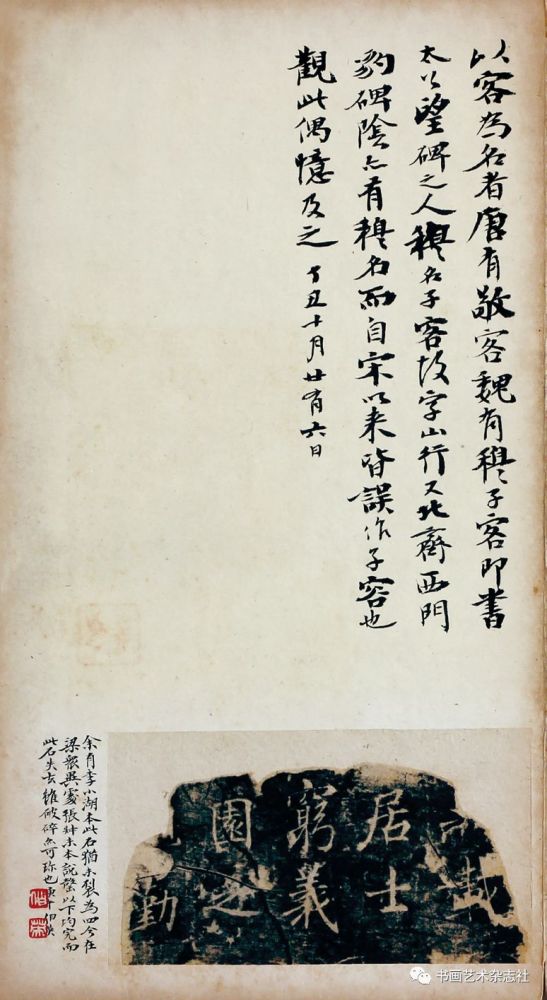 以客為名者唐有敬客魏有穆子客即書
太公望碑之人穆名子客故字山行又北齊西門
豹碑陰亦有穆名而自宋以來皆誤作子容也
觀此偶憶及之 丁丑十月廿有六日
居士
窮義
園之
勤
余有李小湖本此石猶未裂為四今在
梁眾異處張叔未本說罄以下均完而
此石失去雖破碎亦可珍也
书画艺术杂志社